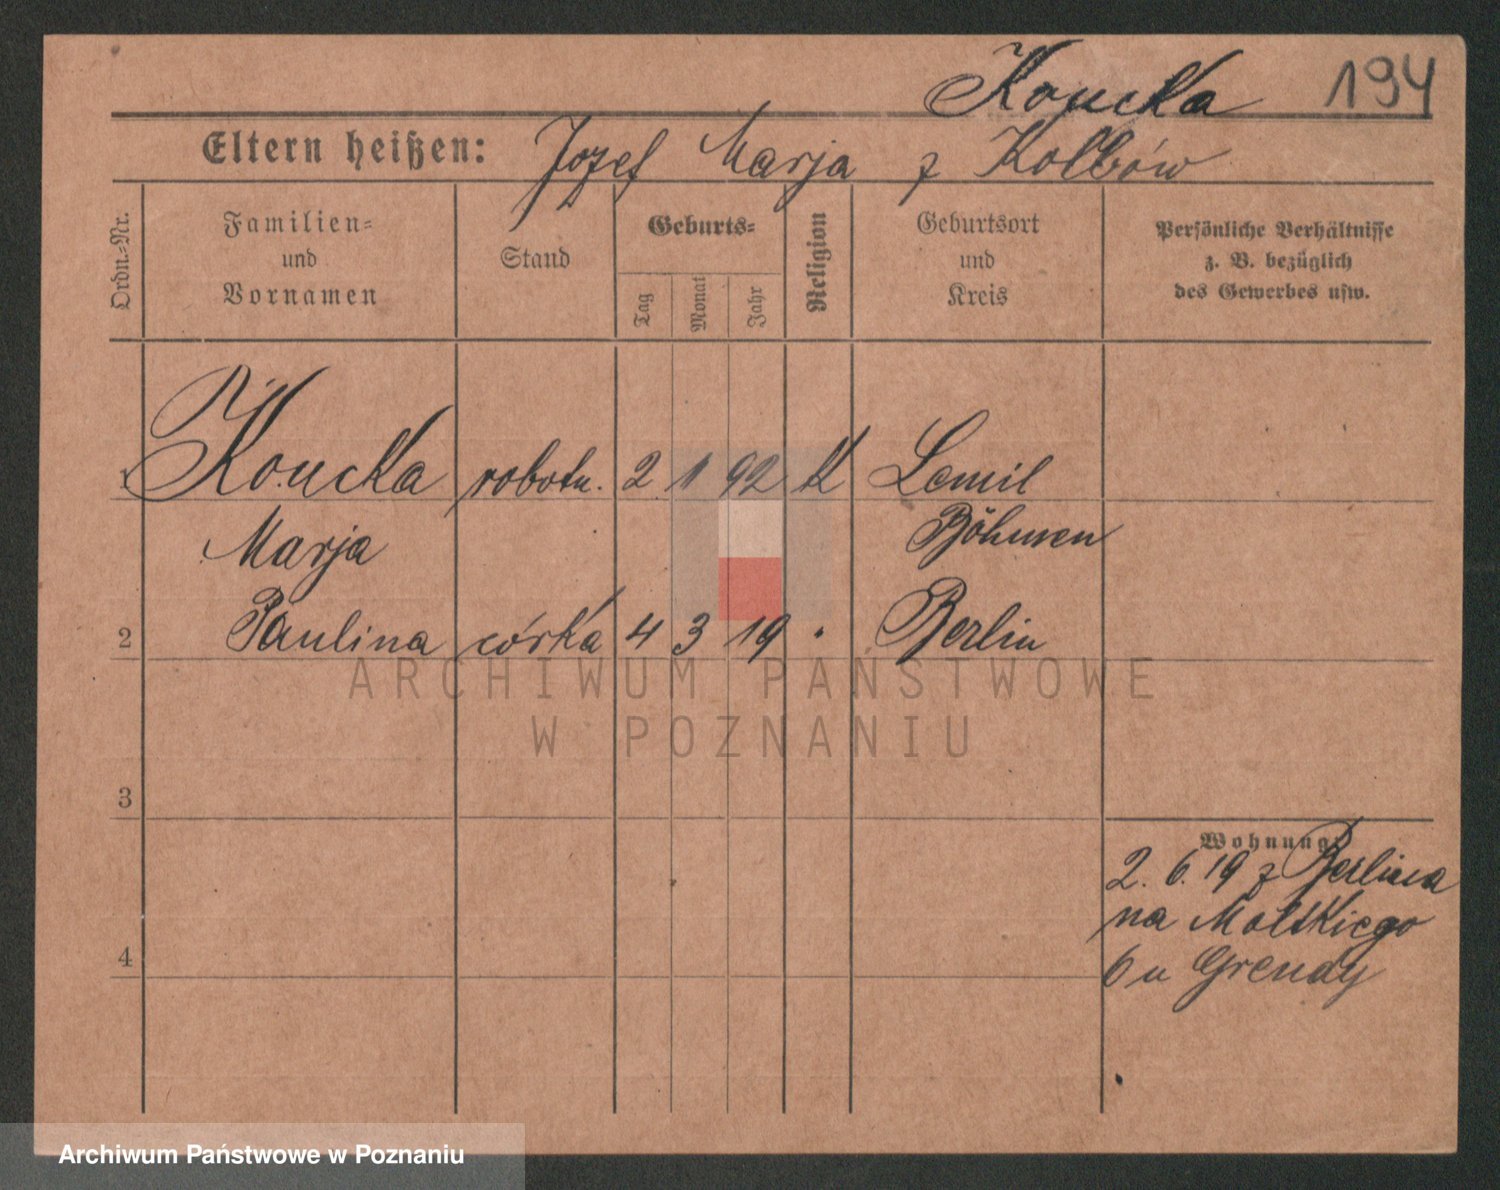 Koucka 194
Eltern heißen: Jozef Marja z Kolbów
Ordn.-Nr.
Familien-
und
Vornamen
Stand
Geburts-
Tag
Monat
Jahr
Religion
Geburtsort
und
Kreis
Persönliche Verhältnisse
z. B. bezüglich
des Gewerbes usw.
1 Koucka robotn. 2 1 92 K Lomil
Marja Böhmen
2 Paulina córka 4 3 19 " Berlin
ARCHIWUM PAŃSTWOWE
W POZNANIU
3
Wohnung:
2. 6. 19 z Berlina
na Moltkiego
4 6 u Grendy
Archiwum Państwowe w Poznaniu